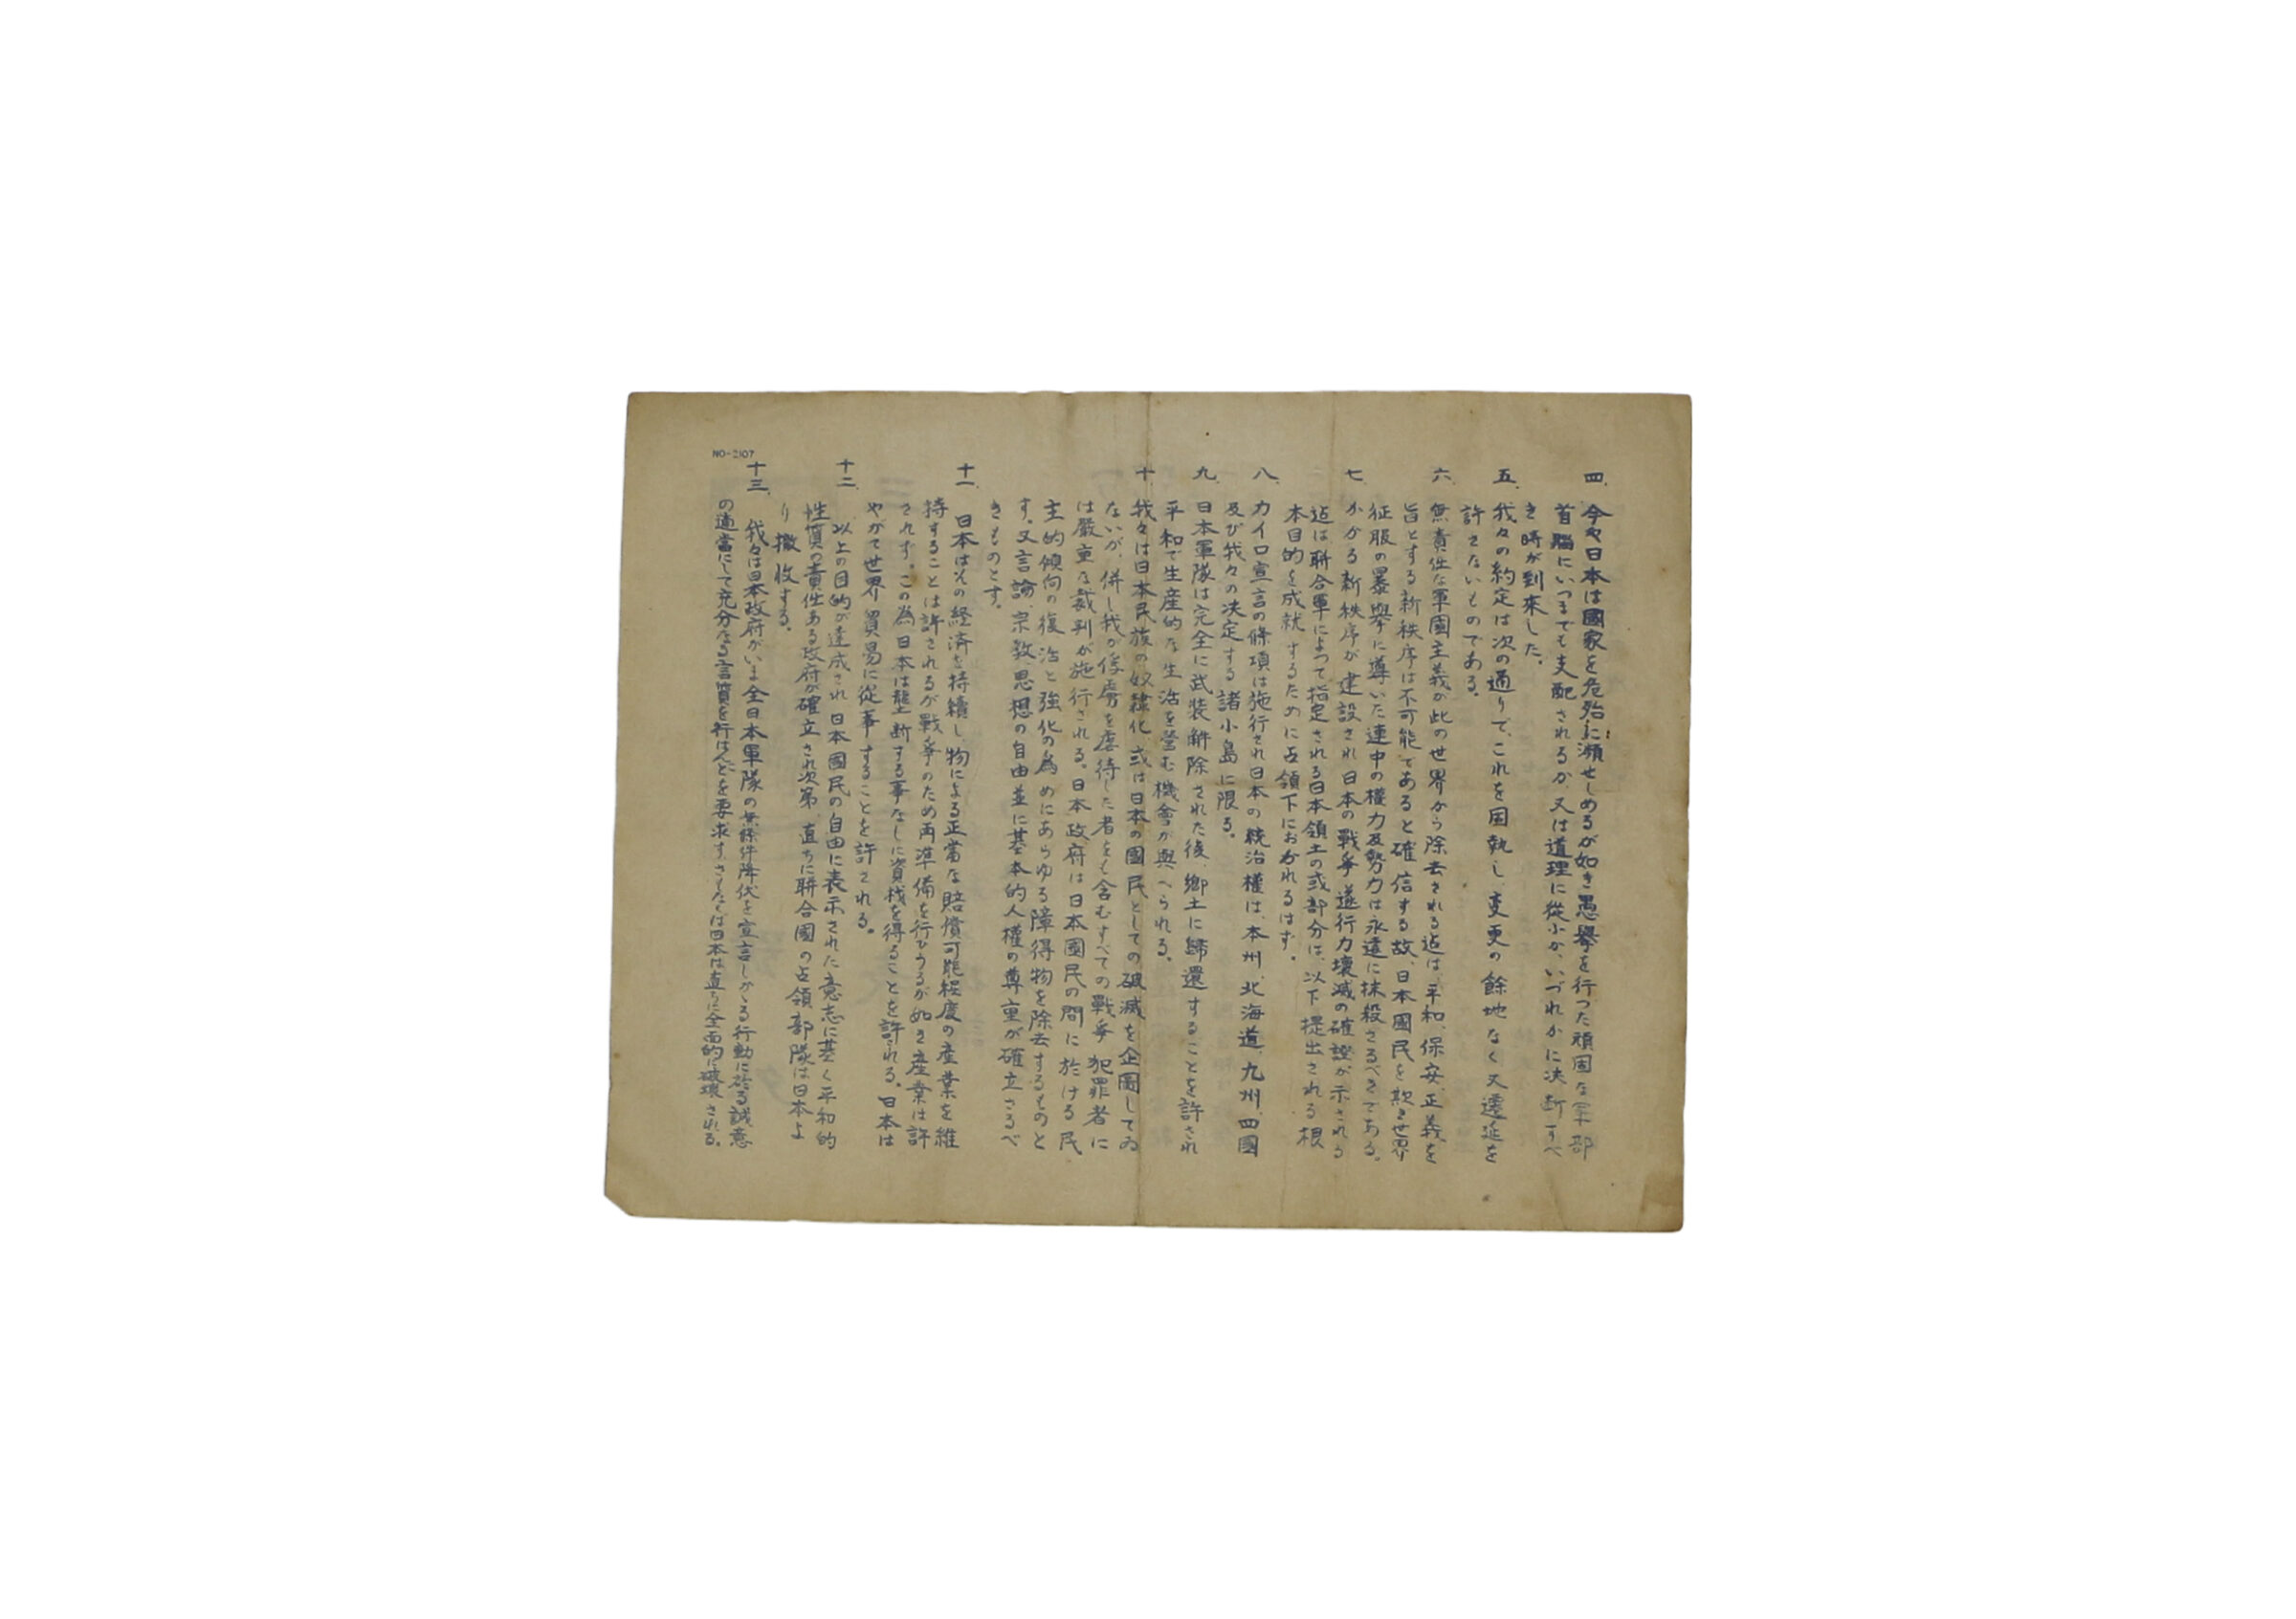 四、今や日本は國家を危殆に瀕せしめるが如き愚擧を行つた頑固な軍部
首腦にいつまでも支配されるか、又は道理に從ふか、いづれかに決断すべ
き時が到來した。
五、我々の約定は次の通りで、これを固執し、変更の餘地なく又遷延を
許さないものである。
六、無責任な軍國主義が此の世界から除去される迄は、平和、保安、正義を
旨とする新秩序は不可能であると確信する故、日本國民を欺き世界
征服の暴擧に導いた連中の權力及勢力は永遠に抹殺さるべきである。
七、かかる新秩序が建設され日本の戰爭遂行力壊滅の確證が示される
迄は聯合軍によつて指定される日本領土の或部分は、以下提出される根
本目的を成就するために占領下におかれるはず。
八、カイロ宣言の條項は施行され日本の統治權は、本州、北海道、九州、四國
及び我々の决定する諸小島に限る。
九、日本軍隊は完全に武装解除された後、鄕土に歸還することを許され
平和で生産的な生活を營む機會が與へられる。
十、我々は日本民族の奴隷化、或は日本の國民としての破滅を企圖してゐ
ないが、併し我が俘虜を虐待した者をも含むすべての戰爭犯罪者に
は嚴重な裁判が施行される。日本政府は日本國民の間に於ける民
主的傾向の復活と強化の爲めにあらゆる障得物を除去するものと
す。又言論、宗教、思想の自由並に基本的人權の尊重が確立さるべ
きものとす。
十一、日本はその経済を持續し、物による正當な賠償可能程度の産業を維
持することは許されるが戰爭のため再準備を行ひうるが如き産業は許
されず。この為日本は壟断する事なしに資材を得ることを許される。日本は
やがて世界貿易に從事することを許される。
十二、以上の目的が達成され日本國民の自由に表示された意志に基く平和的
性質の責任ある政府が確立され次第、直ちに聯合國の占領部隊は日本よ
り撤收する。
十三、我々は日本政府がいま全日本軍隊の無條件降伏を宣言しかゝる行動に於る誠意
の適當にして充分なる言質を行はんことを要求す。さもなくば日本は直ちに全面的に破壊される。
NO-2107